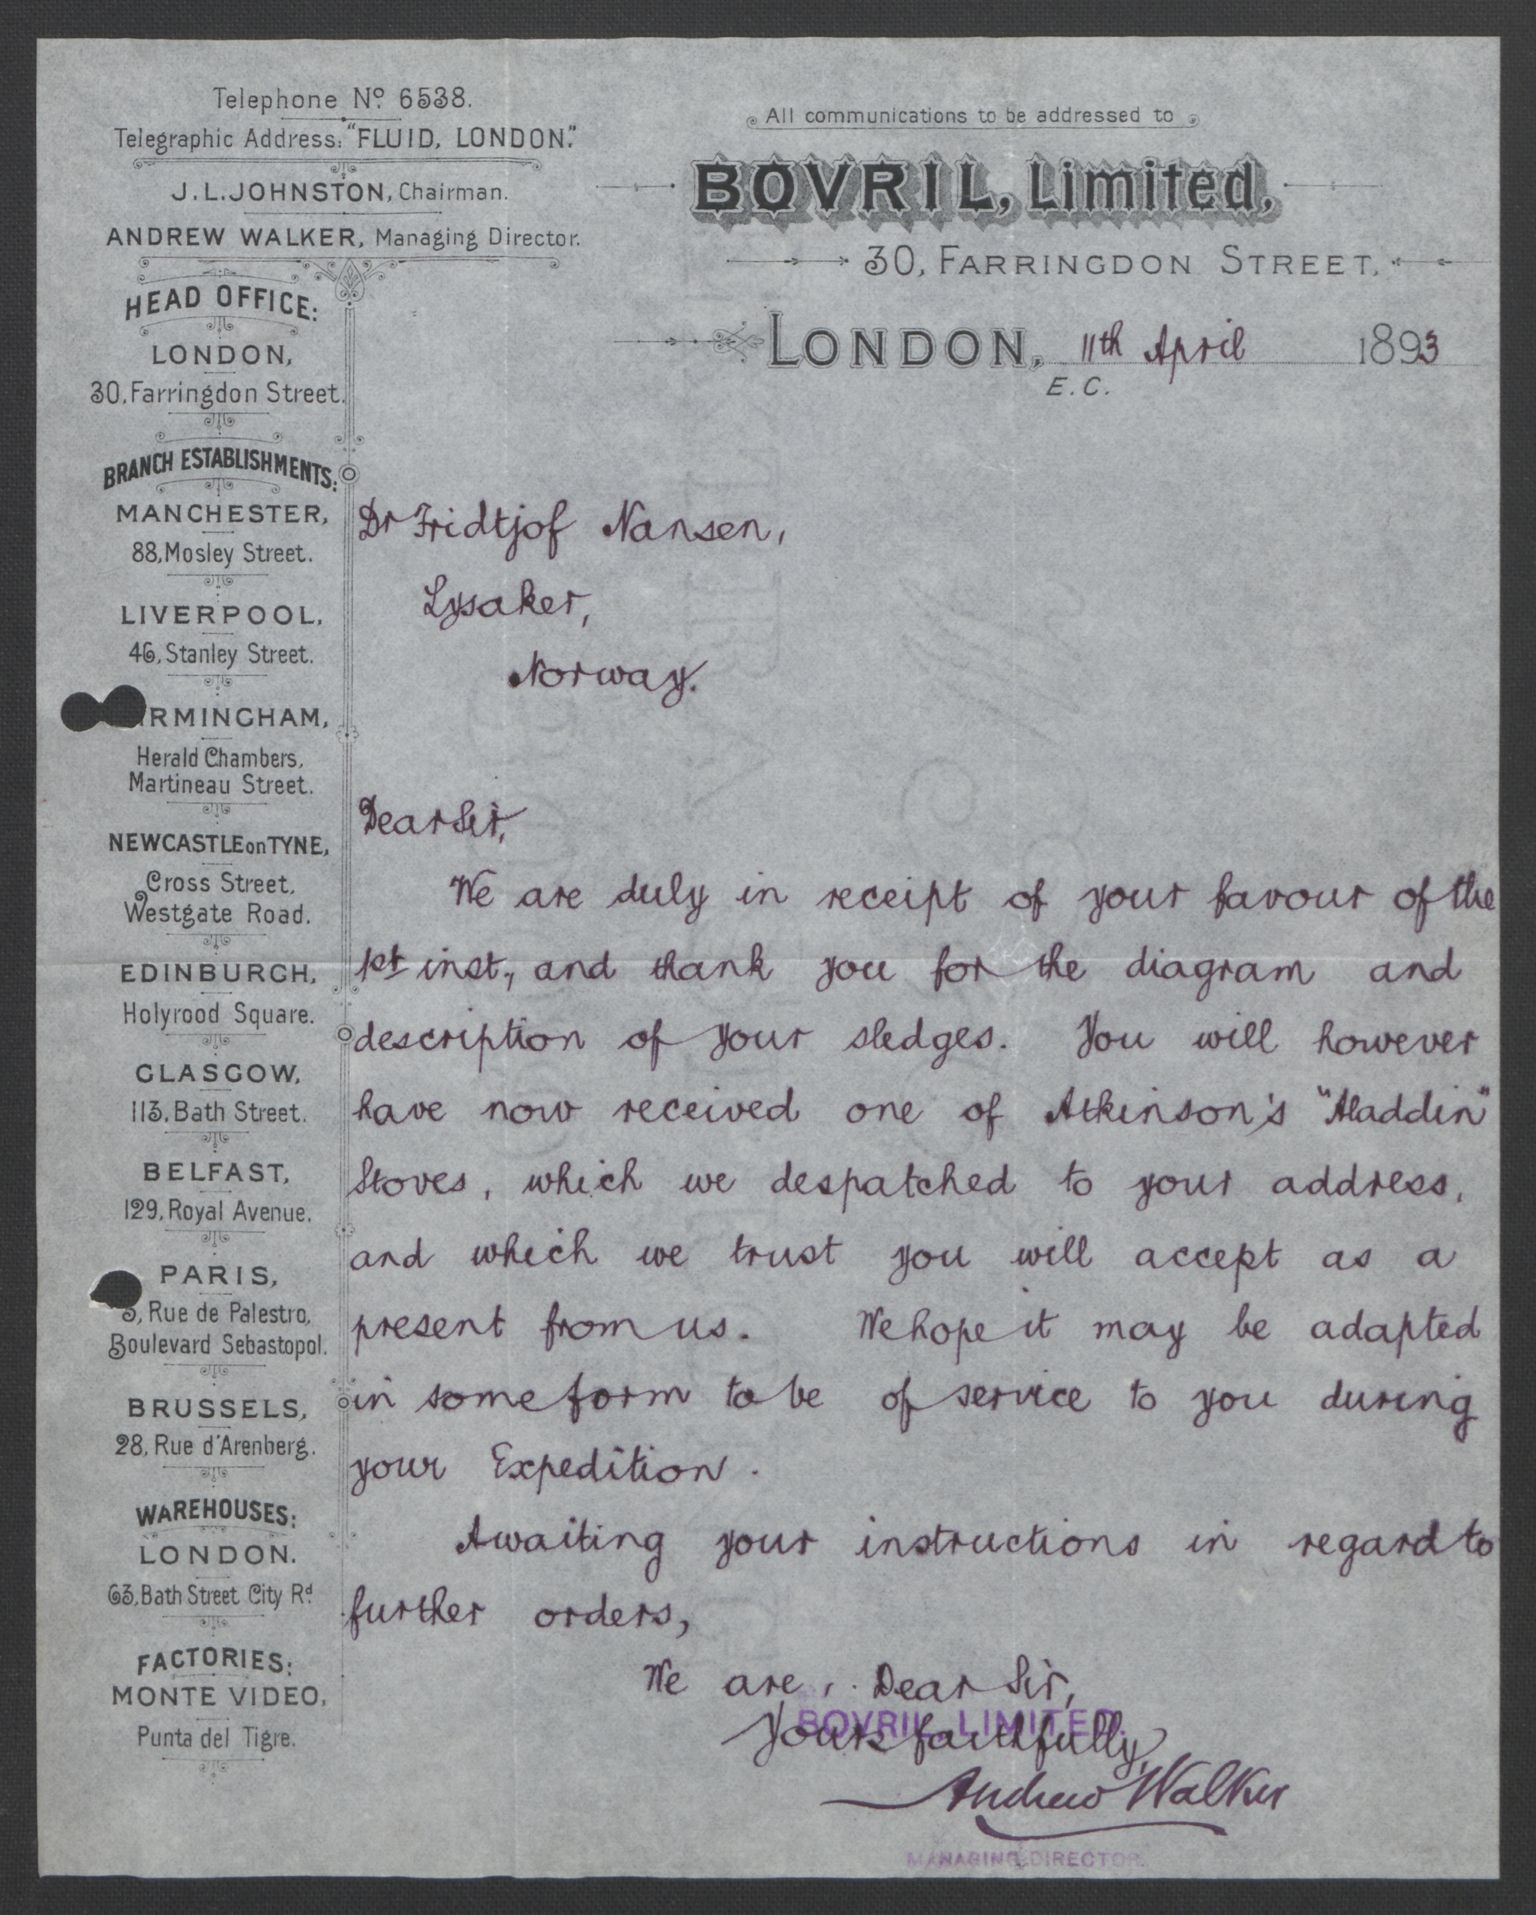 Telephone No. 6538.
Telegraphic Address: "FLUID, LONDON."
J. L. JOHNSTON, Chairman.
ANDREW WALKER, Managing Director.
HEAD OFFICE:
LONDON,
30, Farringdon Street.
BRANCH ESTABLISHMENTS:
MANCHESTER,
88, Mosley Street.
LIVERPOOL,
46, Stanley Street.
RMINGHAM,
Herald Chambers,
Martineau Street.
NEWCASTLE on TYNE,
Cross Street,
Westgate Road.
EDINBURGH,
Holyrood Square.
GLASGOW,
113, Bath Street.
BELFAST,
129, Royal Avenue.
PARIS,
Rue de Palestro,
Boulevard Sebastopol.
BRUSSELS,
28, Rue d'Arenberg.
WAREHOUSES:
LONDON.
63, Bath Street City Rd.
FACTORIES:
MONTE VIDEO,
Punta del Tigre.
All communications to be addressed to
BOVRIL, Limited,
30, FARRINGDON STREET,
LONDON, 11th April 1893
E.C.
Dr Fridtjof Nansen,
Lysaker,
Norway.
Dear Sir,
We are duly in receipt of your favour of the
1st inst., and thank you for the diagram and
description of your sledges. You will however
have now received one of Atkinson's "Aladdin"
Stoves, which we despatched to your address,
and which we trust you will accept as a
present from us. We hope it may be adapted
in some form to be of service to you during
your Expedition.
Awaiting your instructions in regard to
further orders,
We are, Dear Sir,
BOVRIL LIMITED.
Yours faithfully,
Andrew Walker
MANAGING DIRECTOR.